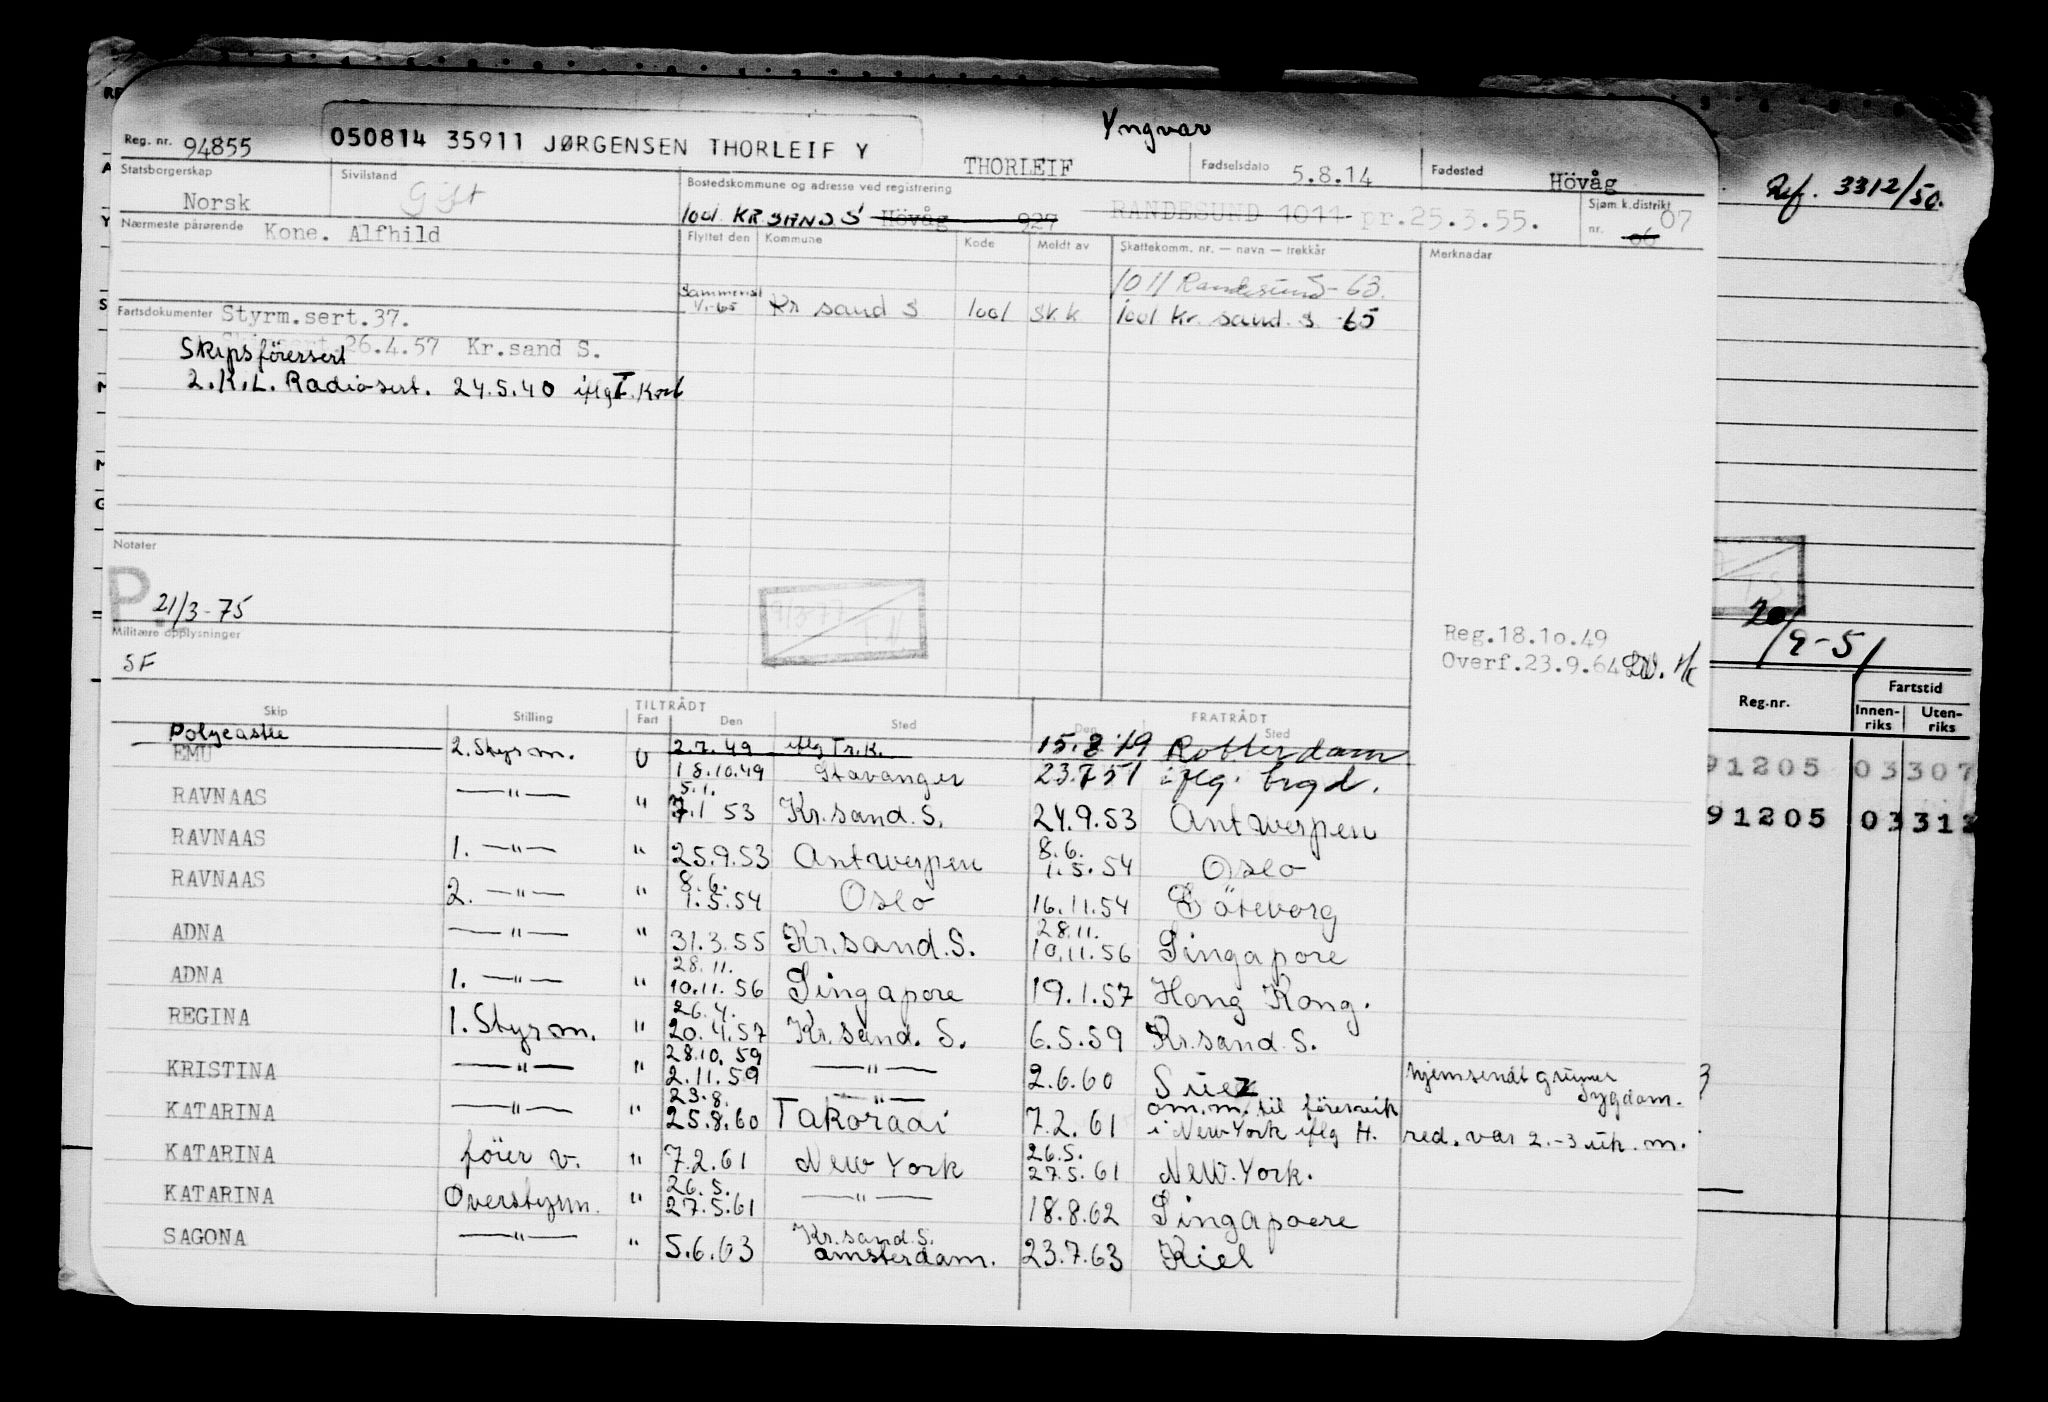 Yngvar
Reg. nr. 94855 050814 35911 JØRGENSEN THORLEIF Y THORLEIF Fødselsdato 5.8.14 Fødested Hövåg
Ref. 3312/50.
Statsborgerskap Norsk Sivilstand Gift Bostedskommune og adresse ved registrering 1001 KR.SANDS S Hövåg 927 RANDESUND 1011 pr.25.3.55. Sjøm.k.distrikt nr. 06 07
Nærmeste pårørende Kone. Alfhild Flyttet den Kommune Kode Meldt av Skattekomm. nr. — navn — trekkår Merknader
1011 Randesund -63.
Sammensl 1/1-65 Kr sand S 1001 Sk.k 1001 Kr. sand. S. -65
Fartsdokumenter Styrm.sert.37.
Skipsförersert 26.4.57 Kr.sand S.
2.K.L. Radiosert. 24.5.40 iflg T. Kort
Notater
P 21/3-75
Militære opplysninger
SF
Reg.18.10.49
Overf.23.9.64
20/9-51
Reg.nr. Fartstid
Innen-riks Uten-riks
91205 03307
91205 03312
Skip Stilling TILTRÅDT Fart Den Sted FRATRÅDT Den Sted
Polycastle 2.7.49 iflg Tr.K. 15.8.49 Rotterdam
EMU 2. Styrm. U 18.10.49 Stavanger 23.7.51 iflg. brgd.
RAVNAAS —"— " 5.1. 7.1 53 Kr.sand.S. 24.9.53 Antwerpen
RAVNAAS 1. —"— " 25.9.53 Antwerpen 8.6. 1.5.54 Oslo
RAVNAAS 2. —"— " 8.6. 1.5.54 Oslo 16.11.54 Göteborg
ADNA —"— " 31.3.55 Kr.sand.S. 28.11. 10.11.56 Singapore
ADNA 1. —"— " 28.11. 10.11.56 Singapore 19.1.57 Hong Kong.
REGINA 1. Styrm. " 26.4. 20.4.57 Kr.sand. S. 6.5.59 Kr.sand.S.
KRISTINA —"— " 28.10.59 2.11.59 —"— 2.6.60 Suez hjemsendt grunnet sygdom.
KATARINA —"— " 23.8. 25.8.60 —"— Takoradi 7.2.61 om.m. til förervik i New York iflg H. red. var 2.-3 uk. m.
KATARINA förer v. " 7.2.61 New York 26.5. 27.5.61 New.York.
KATARINA Overstyrm. " 26.5. 27.5.61 —"— 18.8.62 Singapore
SAGONA —"— " 5.6.63 Kr.sand.S. Amsterdam. 23.7.63 Kiel